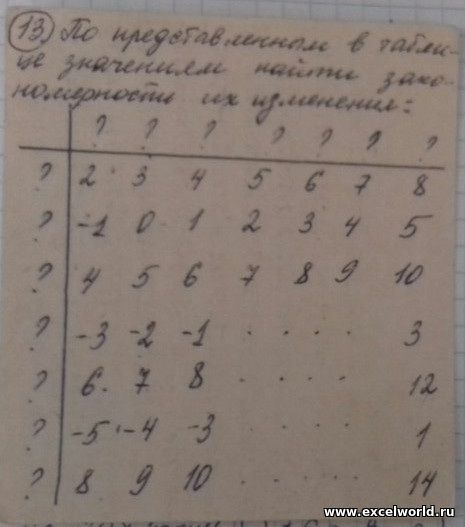 13) По представленным в табли-
це значениям найти зако-
номерности их изменения:
? ? ? ? ? ? ?
? 2 3 4 5 6 7 8
? -1 0 1 2 3 4 5
? 4 5 6 7 8 9 10
? -3 -2 -1 . . . . 3
? 6 7 8 . . . . 12
? -5 -4 -3 . . . . . 1
? 8 9 10 . . . . . . 14
www.excelworld.ru